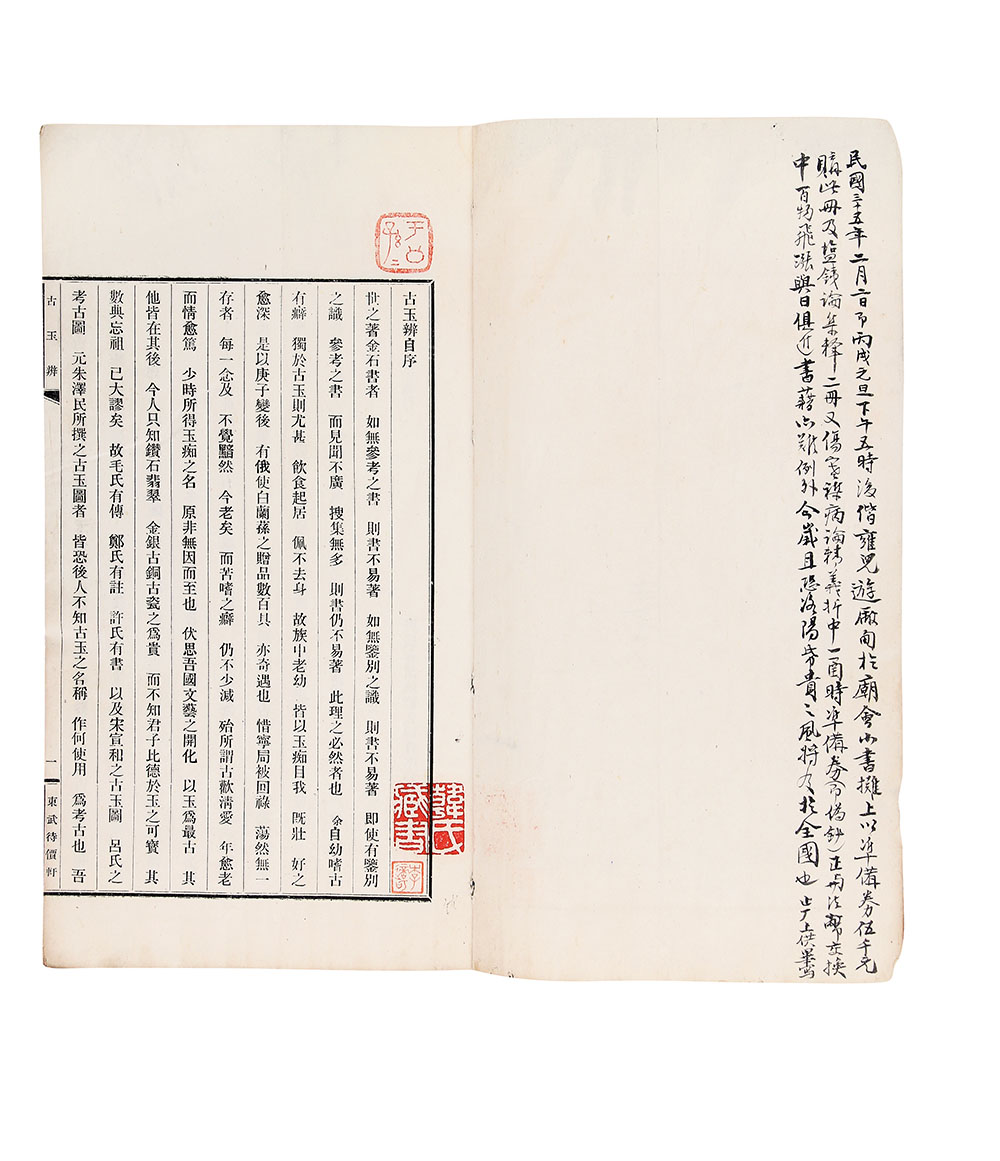 民國三十五年二月二日即丙戌元旦下午五時後偕雍兒遊厰甸於廟會小書攤上以準備券伍千元
購此冊及塩鉄論集釋二冊又傷寒雜病論精義折中一函時準備券
中百物飛漲與日俱近書藉亦難例外今歲且恐洛陽帋貴之風將及於全國也
古玉辨自序
世之著金石書者　如無參考之書　則書不易著　如無鑒別之識　則書不易著　即使有鑒別
之識　參考之書　而見聞不廣　搜集無多　則書仍不易著　此理之必然者也　余自幼嗜古
有癖　獨於古玉則尤甚　飲食起居　佩不去身　故族中老幼　皆以玉痴目我　既壯　好之
愈深　是以庚子變後　有俄使白蘭蓀之贈品數百具　亦奇遇也　惜寧局被回祿　蕩然無一
存者　每一念及　不覺黯然　今老矣　而苦嗜之癖　仍不少減　殆所謂古歡清愛　年愈老
而情愈篤　少時所得玉痴之名　原非無因而至也　伏思吾國文藝之開化　以玉爲最古　其
他皆在其後　今人只知鑽石翡翠　金銀古銅古瓷之爲貴　而不知君子比德於玉之可寶　其
數典忘祖　已大謬矣　故毛氏有傳　鄭氏有註　許氏有書　以及宋宣和之古玉圖　呂氏之
考古圖　元朱澤民所撰之古玉圖者　皆恐後人不知古玉之名稱　作何使用　爲考古也　吾
古玉辨
一
東武待價軒
韓氏
藏書